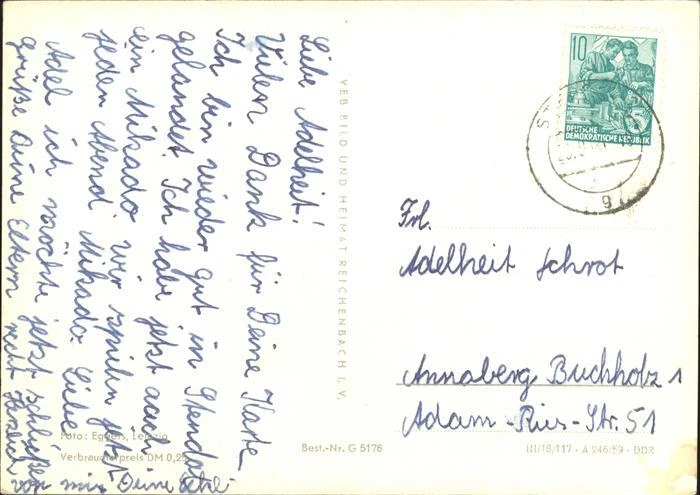 Liebe Adelheit!
Vielen Dank für Deine Karte
Ich bin wieder gut in Stendal
gelandet. Ich habe jetzt auch
ein Mikado wir spielen jetzt
jeden Abend Mikado. Liebe
Adel ich möchte jetzt schließen
grüße Deine Eltern recht herzlich
von mir Deine
VEB BILD UND HEIMAT REICHENBACH I. V.
10
DEUTSCHE
DEMOKRATISCHE REPUBLIK
Frl.
Adelheit Schrot
Annaberg Buchholz 1
Adam-Ries-Str. 51
Foto: Eggers, Leipzig
Verbraucherpreis DM 0,25
Best.-Nr. G 5176
III/18/117 - A 946/59 - DDR